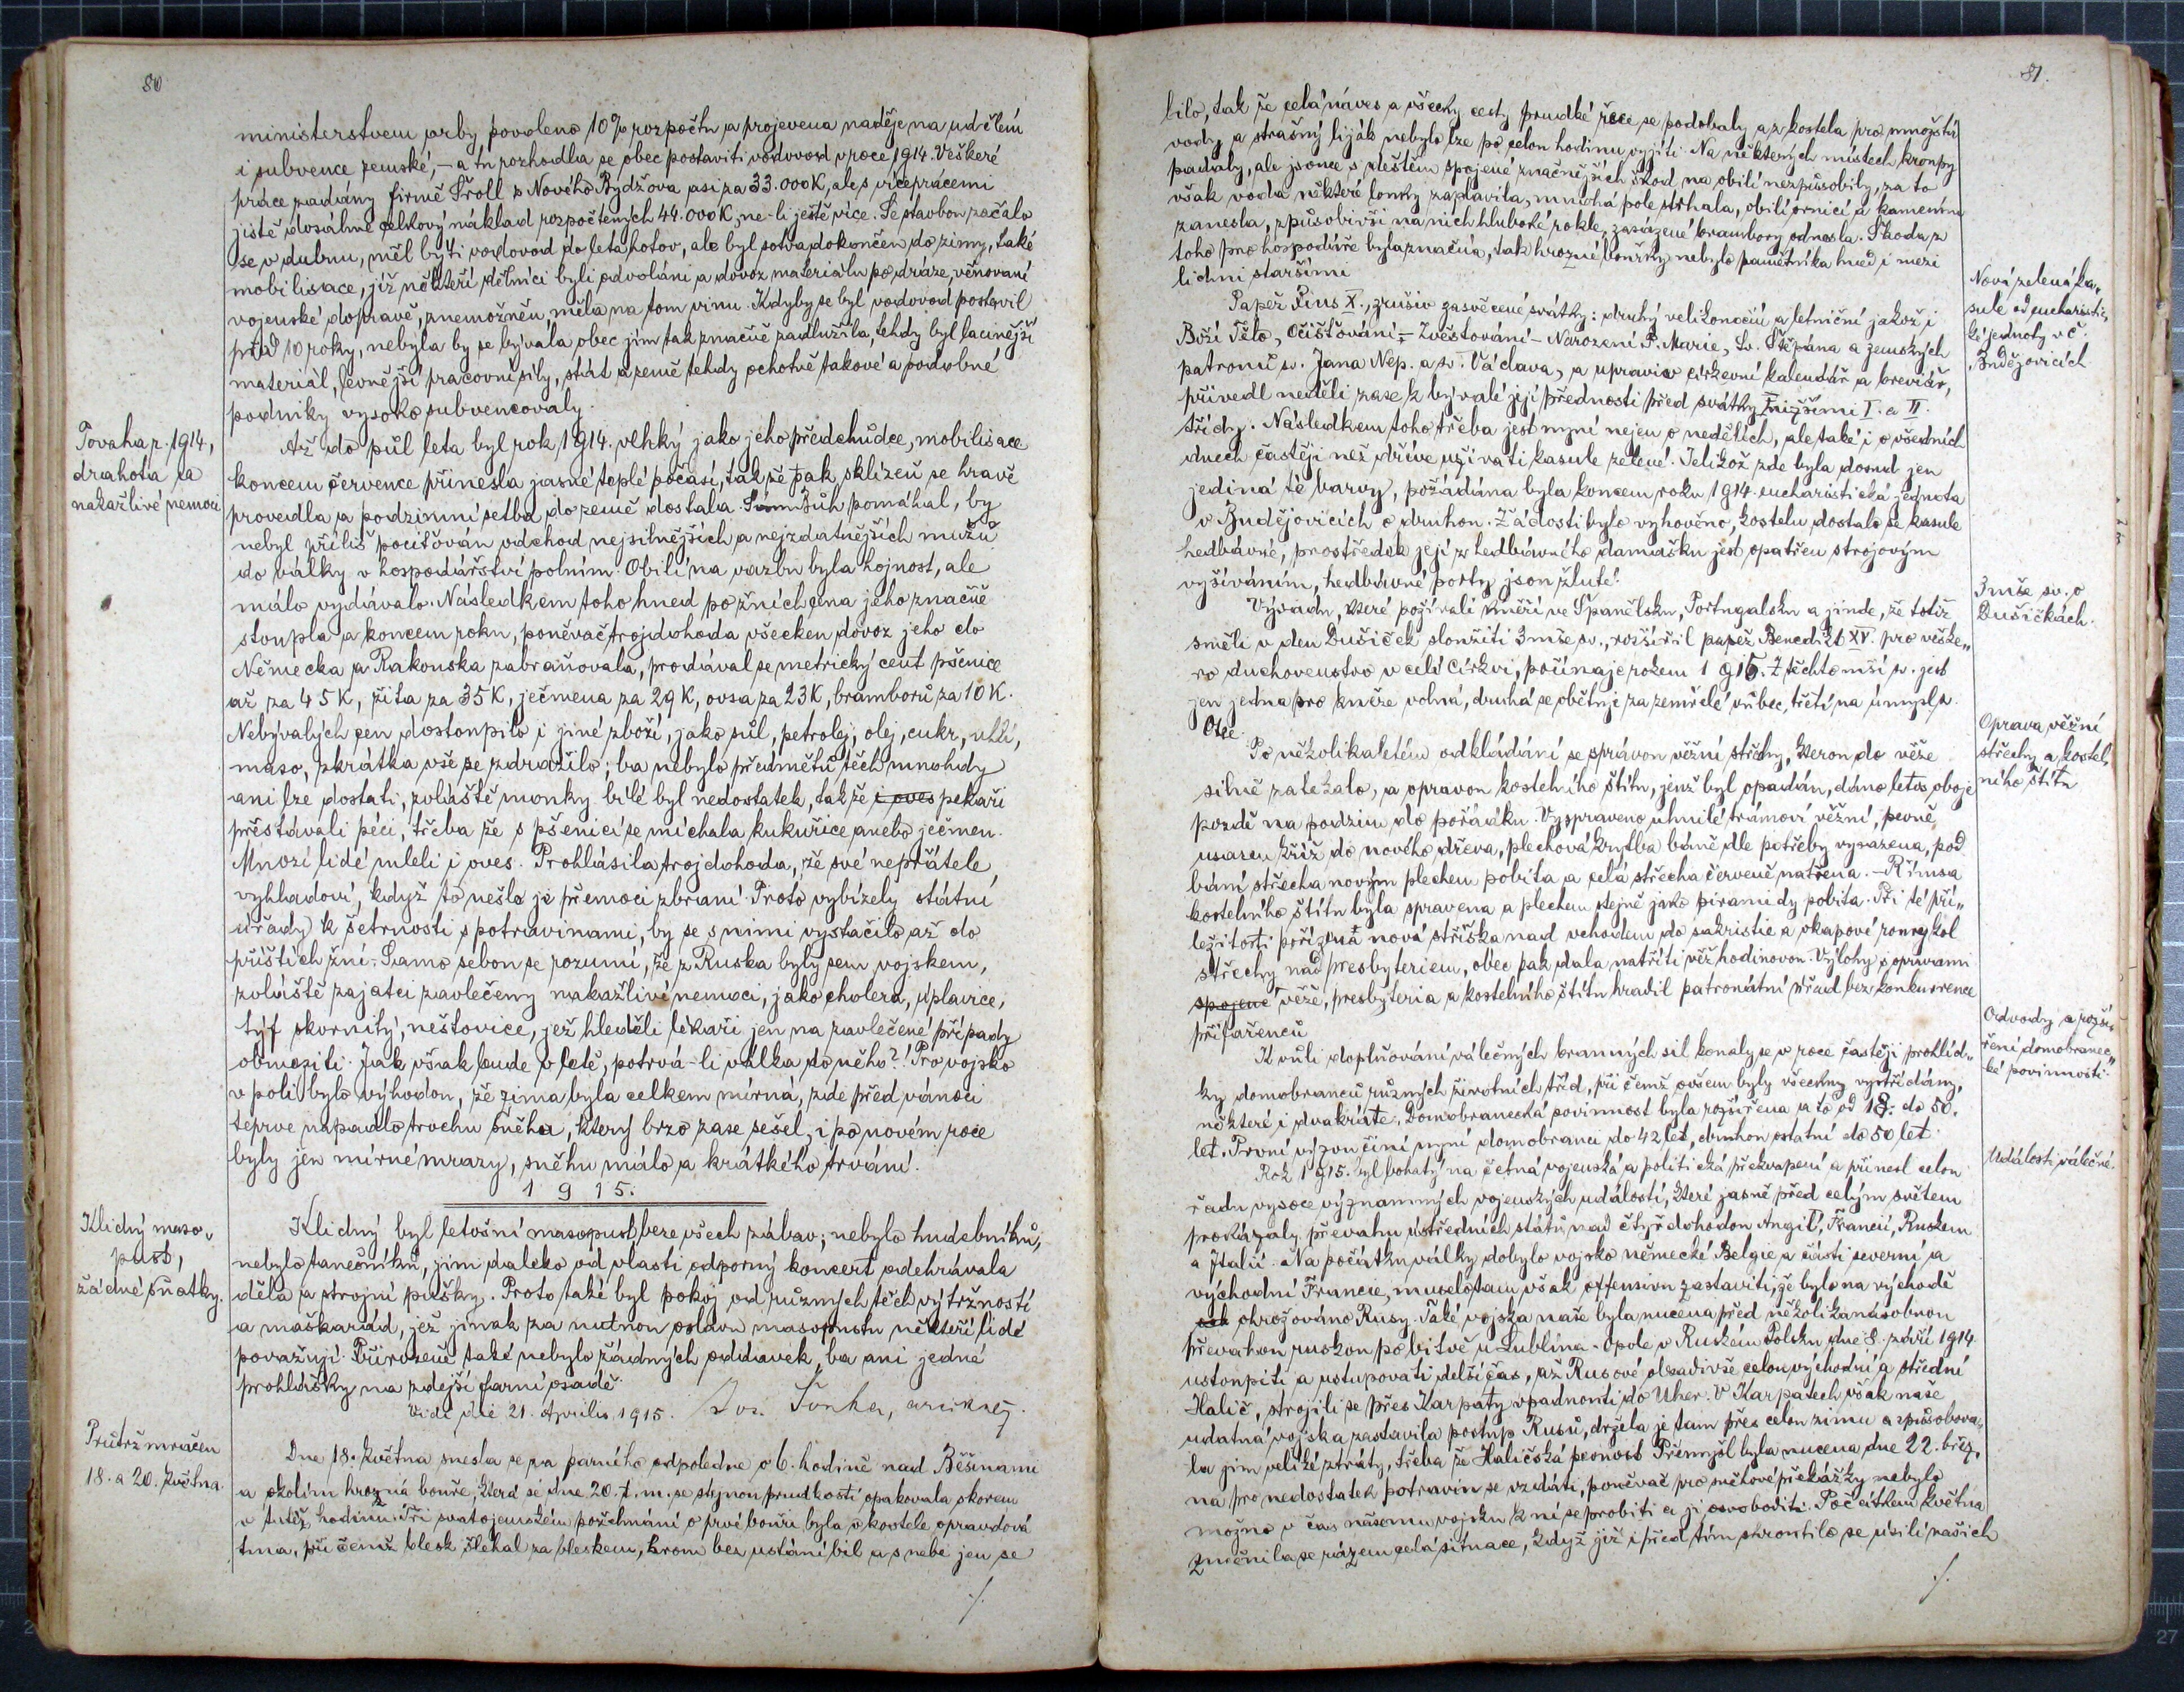 80
ministerstvem orby povoleno 10% rozpočtu a projevena naděje na udělení
i subvence zemské, – a tu rozhodla se obec postaviti vodovod v roce 1914. Veškeré
práce zadány firmě Šroll z Nového Bydžova asi za 33.000 K, ale s vícepracemi
jistě dosáhne celkový náklad rozpočtených 44.000 K, ne-li ještě více. Se stavbou začalo
se v dubnu, měl býti vodovod do leta hotov, ale byl sotva dokončen do zimy, také
mobilisace, jíž někteří dělníci byli odvoláni a dovoz materiálu po dráze, věnované
vojenské dopravě, znemožněn, měla na tom vinu. Kdyby se byl vodovod postavil
před 10 roky, nebyla by se bývala obec jím tak značně zadlužila, tehdy byl lacinější
materiál, levnější pracovní síly, stát a země tehdy ochotně takové a podobné
podniky vysoko subvencovaly.
Povaha r. 1914,
drahota a
nakažlivé nemoci
Až do půl leta byl rok 1914. vlhký jako jeho předchůdce, mobilisace
koncem července přinesla jasné teplé počasí, tak že pak sklizeň se hravě
provedla a podzimní setba do země dostala. Sám Bůh pomáhal, by
nebyl příliš pociťován odchod nejsilnějších a nejzdatnějších mužů
do války v hospodářství polním. Obilí na vazbu byla hojnost, ale
málo vydávalo. Následkem toho hned po žních cena jeho značně
stoupla a koncem roku, poněvač trojdohoda všecken dovoz jeho do
Německa a Rakouska zabraňovala, prodával se metrický cent pšenice
až za 45 K, žita za 35 K, ječmena za 29 K, ovsa za 23 K, bramborů za 10 K.
Nebývalých cen dostoupilo i jiné zboží, jako sůl, petrolej, olej, cukr, uhlí,
maso, zkrátka vše se zdražilo; ba nebylo předmětů těch mnohdy
ani lze dostati, zvláště mouky bílé byl nedostatek, tak že i oves pekaři
přestávali péci, třeba že s pšenicí se míchala kukuřice anebo ječmen.
Mnozí lidé mleli i oves. Prohlásila trojdohoda, že své nepřátele
vyhladoví, když to nešlo je přemoci zbraní. Proto vybízely státní
úřady k šetrnosti s potravinami, by se s nimi vystačilo až do
příštích žní. Samo sebou se rozumí, že z Ruska byly sem vojskem,
zvláště zajatci zavlečeny nakažlivé nemoci, jako cholera, úplavice,
týf skvrnitý, neštovice, jež hleděli lékaři jen na zavlečené případy
obmeziti. Jak však bude v letě, potrvá-li válka do něho?! Pro vojsko
v poli bylo výhodou, že zima byla celkem mírná, zde před vánoci
teprve napadlo trochu sněhu, který brzo zase sešel, i po novém roce
byly jen mírné mrazy, sněhu málo a krátkého trvání.
1915.
Klidný maso-
pust,
žádné sňatky.
Klidný byl letošní masopust beze všech zábav; nebylo hudebníků,
nebylo tanečníků, jim daleko od vlasti odporný koncert odehrávala
děla a strojní pušky. Proto také byl pokoj od různých těch výtržností
a maškarád, jež jinak za nutnou oslavu masopustu někteří lidé
považují. Přirozeně také nebylo žádných oddavek, ba ani jedné
prohlášky na zdejší farní osadě.
Vidi die 21. Aprilis 1915.
Průtrž mračen
18. a 20. května
Dne 18. května snesla se za parného odpoledne o 6. hodině nad Běšinami
a okolím hrozná bouře, která se dne 20. t. m. se stejnou prudkostí opakovala skorem
v tutéž hodinu. Při svatojanském požehnání o prvé bouři byla v kostele opravdová
tma, při čemž blesk šlehal za bleskem, hrom bez ustání bil a s nebe jen se
./.
81.
lilo, tak že celá náves a všecky cesty prudké řece se podobaly a z kostela pro množství
vody a strašný liják nebylo lze po celou hodinu vyjíti. Na některých místech kroupy
padaly, ale jsouce s deštěm spojené značnějších škod na obilí nezpůsobily, za to
však voda některé louky zaplavila, mnohá pole strhala, obilí ornicí a kamením
zanesla, způsobivši na nich hluboké rokle, zasázené brambory odnesla. Škoda z
toho pro hospodáře byla značná, tak hrozné bouřky nebylo pamětníka hned i mezi
lidmi staršími
Nová zelená ka-
sule od eucharistic-
ké jednoty v Č.
Budějovicích
Papež Pius X., zrušiv zasvěcené svátky: druhý velikonoční a letniční jakož i
Boží Tělo, Očišťování – Zvěstování – Narození P. Marie, Sv. Štěpána a zemských
patronů sv. Jana Nep. a sv. Václava, a upraviv církevní kalendář a breviář,
přivedl neděli zase k bývalé její přednosti před svátky nižšími I. a II.
třídy. Následkem toho třeba jest nyní nejen o nedělích, ale také i o všedních
dnech častěji než dříve užívati kasule zelené. Jelikož zde byla dosud jen
jediná té barvy, požádána byla koncem roku 1914. eucharistická jednota
v Budějovicích o druhou. Žádosti bylo vyhověno, kostelu dostalo se kasule
hedbávné, prostředek její z hedbávného damašku jest opatřen strojovým
vyšíváním, hedbávné porty jsou žluté.
3 mše sv. o
Dušičkách.
Výsadu, které požívali kněží ve Španělsku, Portugalsku a jinde, že totiž
směli v den Dušiček sloužiti 3 mše sv., rozšířil papež Benedikt XV. pro veške-
ro duchovenstvo v celé Církvi, počínaje rokem 1915. Z těchto mší sv. jest
jen jedna pro kněze volná, druhá se obětuje za zemřelé vůbec, třetí na úmysl sv.
Otce.
Oprava věžní
střechy a kostel-
ního štítu
Po několikaletém odkládání se správou věžní střechy, kterou do věže
silně zatékalo, a opravou kostelního štítu, jenž byl opadán, dáno letos oboje
pozdě na podzim do pořádku. Vyspraveno uhnilé trámoví věžní, pevně
usazen kříž do nového dřeva, plechová krytba báně dle potřeby vyvazena, pod
bání střecha novým plechem pobita a celá střecha červeně natřena. – Římsa
kostelního štítu byla spravena a plechem stejně jako piramidy pobita. Při té pří-
ležitosti pořízena nová stříška nad vchodem do sakristie a okapové roury kol
střechy nad presbyteriem, obec pak dala natříti věž hodinovou. Výlohy s opravami
spojené věže, presbyteria a kostelního štítu hradil patronátní úřad bez konkurence
přifařenců
Odvody a rozší-
ření domobranec-
ké povinnosti.
K vůli doplňování válečných branných sil konaly se v roce častěji prohlíd-
ky domobranců různých životních tříd, při čemž ovšem byly všechny vystřídány,
některé i dvakráte. Domobranecká povinnost byla rozšířena a to od 18. do 50.
let. První výzvou činí nyní domobranci do 42 let, druhou ostatní do 50 let.
Události válečné.
Rok 1915. byl bohatý na četná vojenská a politická překvapení a přinesl celou
řadu vysoce významných vojenských událostí, které jasně před celým světem
prokázaly převahu ústředních států nad čtyřdohodou Anglií, Francií, Ruskem
a Italií. Na počátku války dobylo vojsko německé Belgie a části severní a
východní Francie, muselo tam však offensivu zastaviti, že bylo na východě
ohrožováno Rusy. Také vojska naše byla nucena před několikanásobnou
převahou ruskou po bitvě u Lublína – Opole v Ruském Polsku dne 8. září 1914
ustoupiti a ustupovati delší čas, až Rusové obsadivše celou východní a střední
Halič, strojili se přes Karpaty vpadnouti do Uher. V Karpatech však naše
udatná vojska zastavila postup Rusů, držela je tam přes celou zimu a způsobova-
la jim veliké ztráty, třeba že Haličská pevnost Přemyšl byla nucena dne 22. břez-
na pro nedostatek potravin se vzdáti, poněvač pro sněhové překážky nebylo
možno v čas našemu vojsku k ní se probiti a ji osvoboditi. Počátkem května
změnila se rázem celá situace, když již i před tím zhroutilo se úsilí našich
./.
27